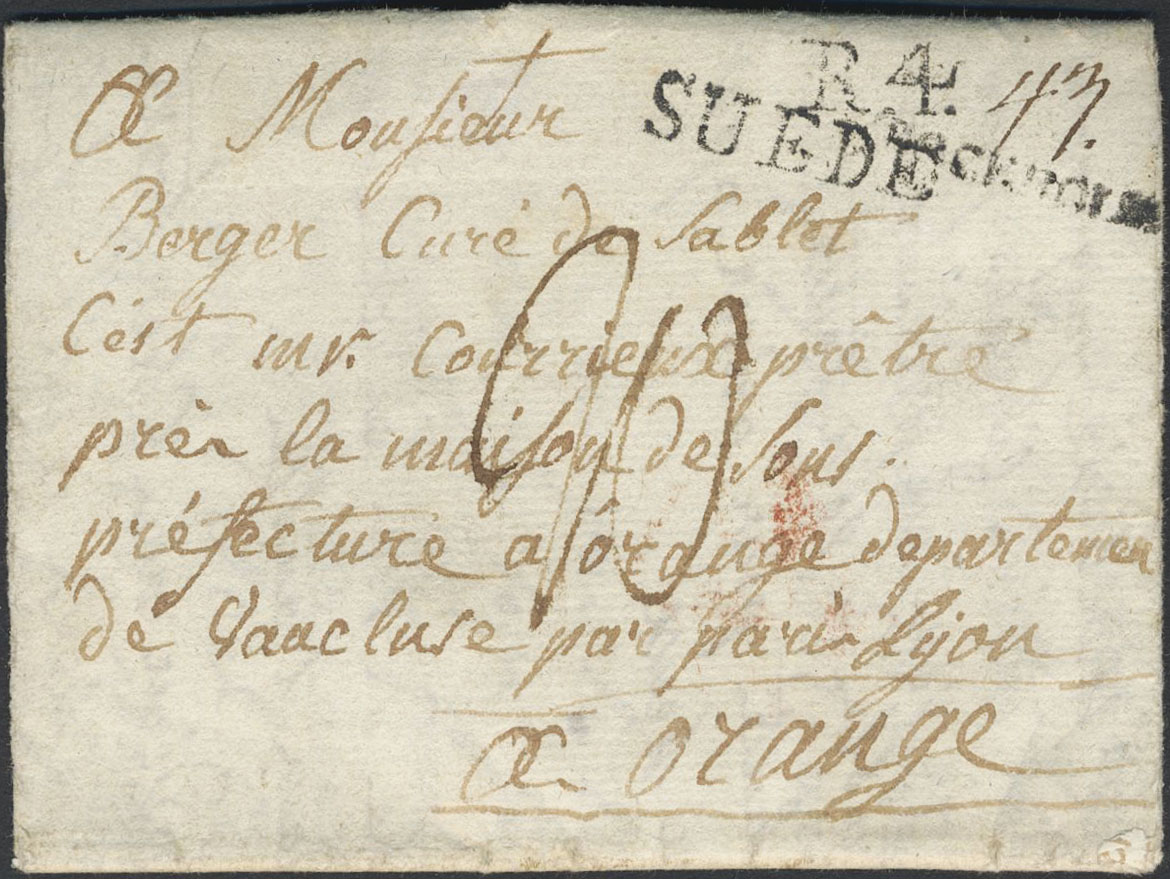 R.4.
43.
SUEDE
A Monsieur
Berger Curé de Sablet
C'est mr. Courrieux prêtre
près la maison de sous.
préfecture a orange departemen
de Vaucluse par paris Lyon
A orange